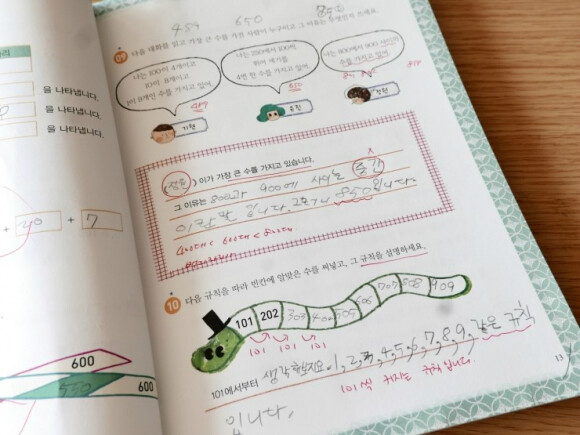 489 650
09 다음 대화를 읽고 가장 큰 수를 가진 사람이 누구이고 그 이유는 무엇인지 쓰세요.
나는 100이 4개이고
10이 8개이고
1이 9개인 수를 가지고 있어.
나는 250에서 100씩
뛰어 세기를
4번 한 수를 가지고 있어.
나는 800에서 900 사이의
수를 가지고 있어.
489
650
기현
은진
정현
을 나타냅니다.
을 나타냅니다.
을 나타냅니다.
( 정현 )이가 가장 큰 수를 가지고 있습니다.
그 이유는 800과 900에 사이는 중간
850입니다.
+ 40 + 7
10 다음 규칙을 따라 빈칸에 알맞은 수를 써넣고, 그 규칙을 설명하세요.
101 202 303 404 505 606 707 808 909
101 101 101
101에서부터 생각해보지요. 1,2,3,4,5,6,7,8,9, 같은 규칙
101씩 커지는 규칙입니다.
입니다.
600
550 600
13